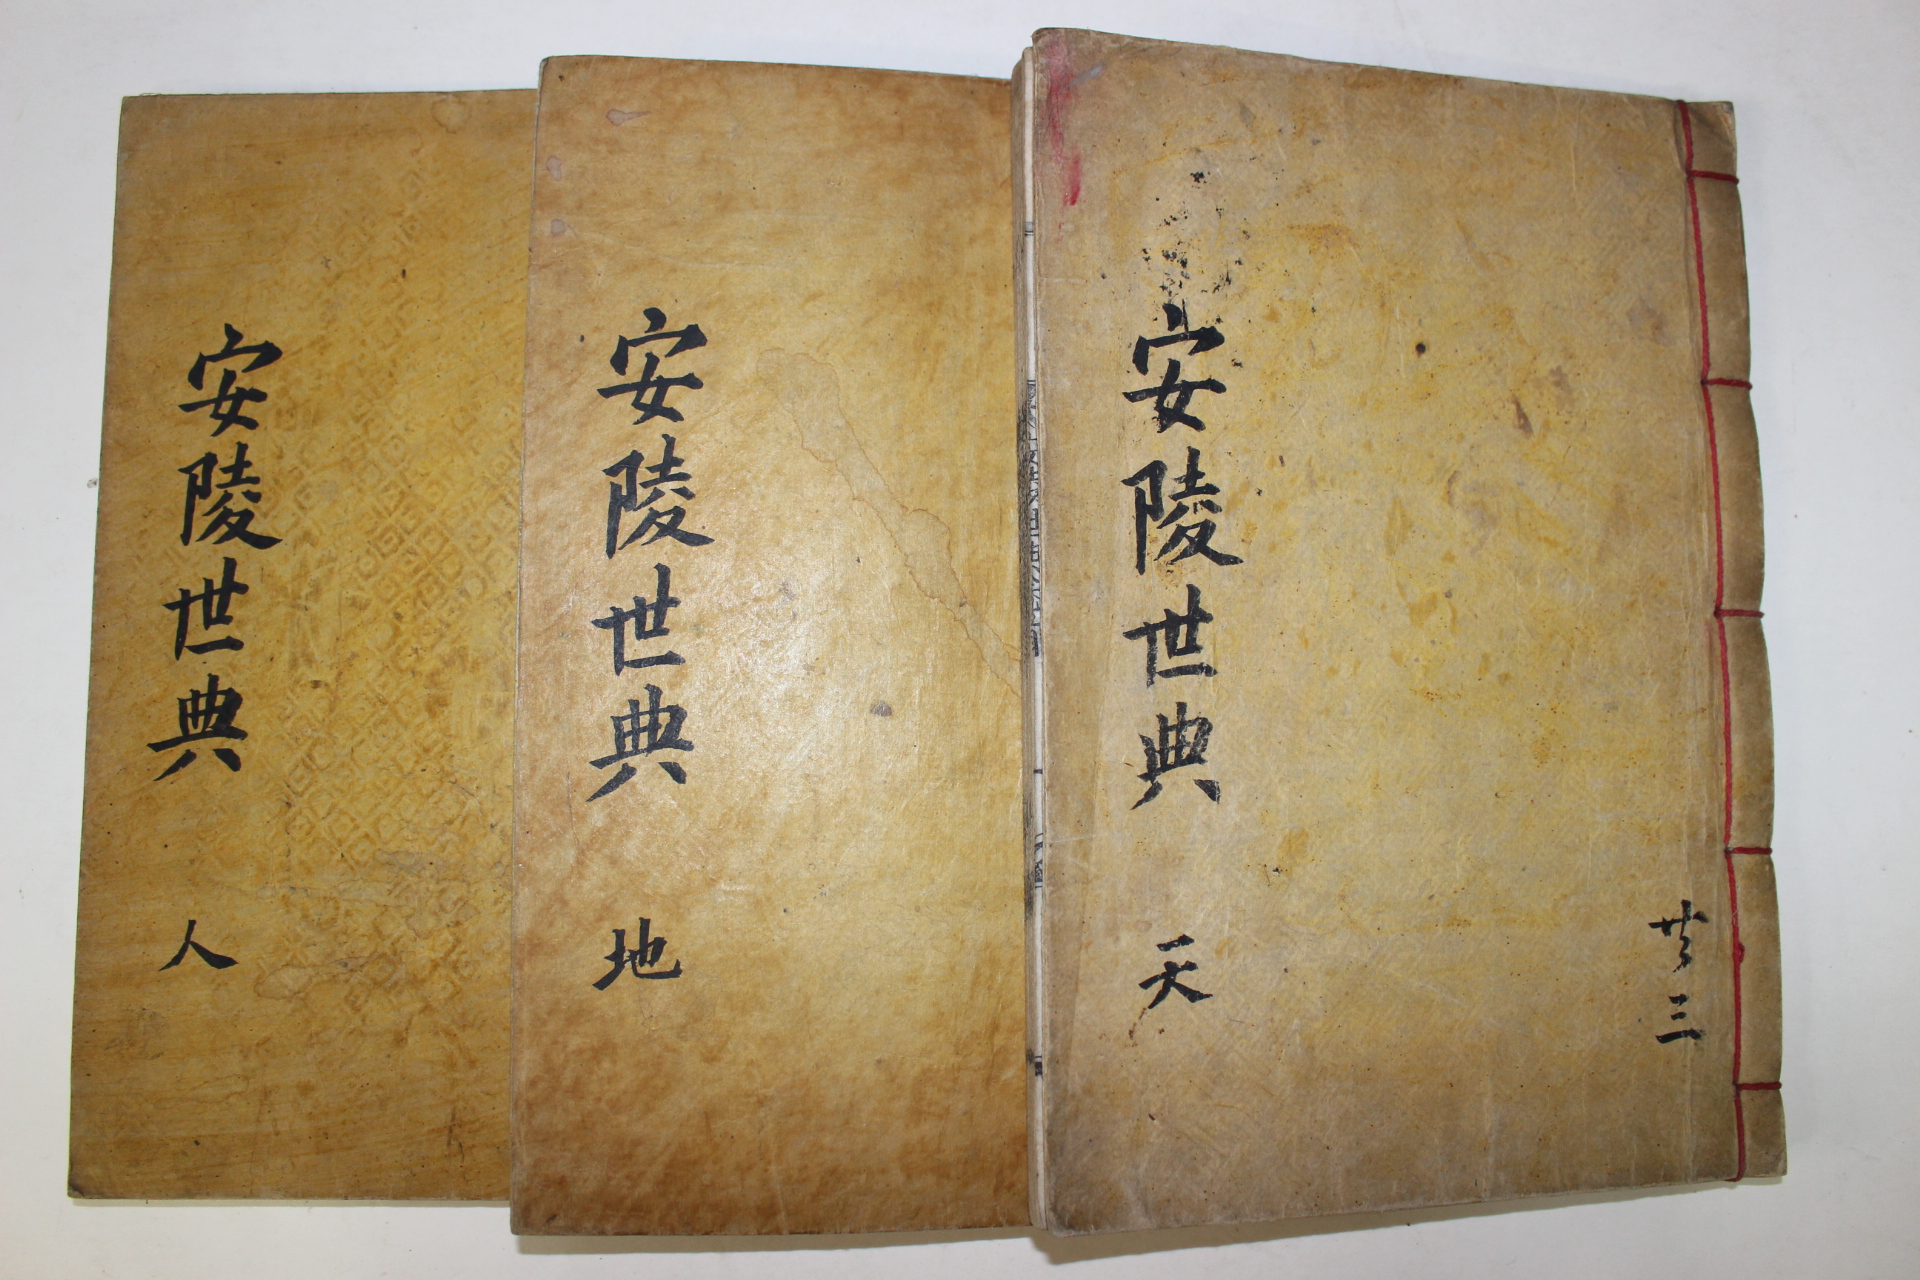 安陵世典 天
共三
安陵世典 地
安陵世典 人